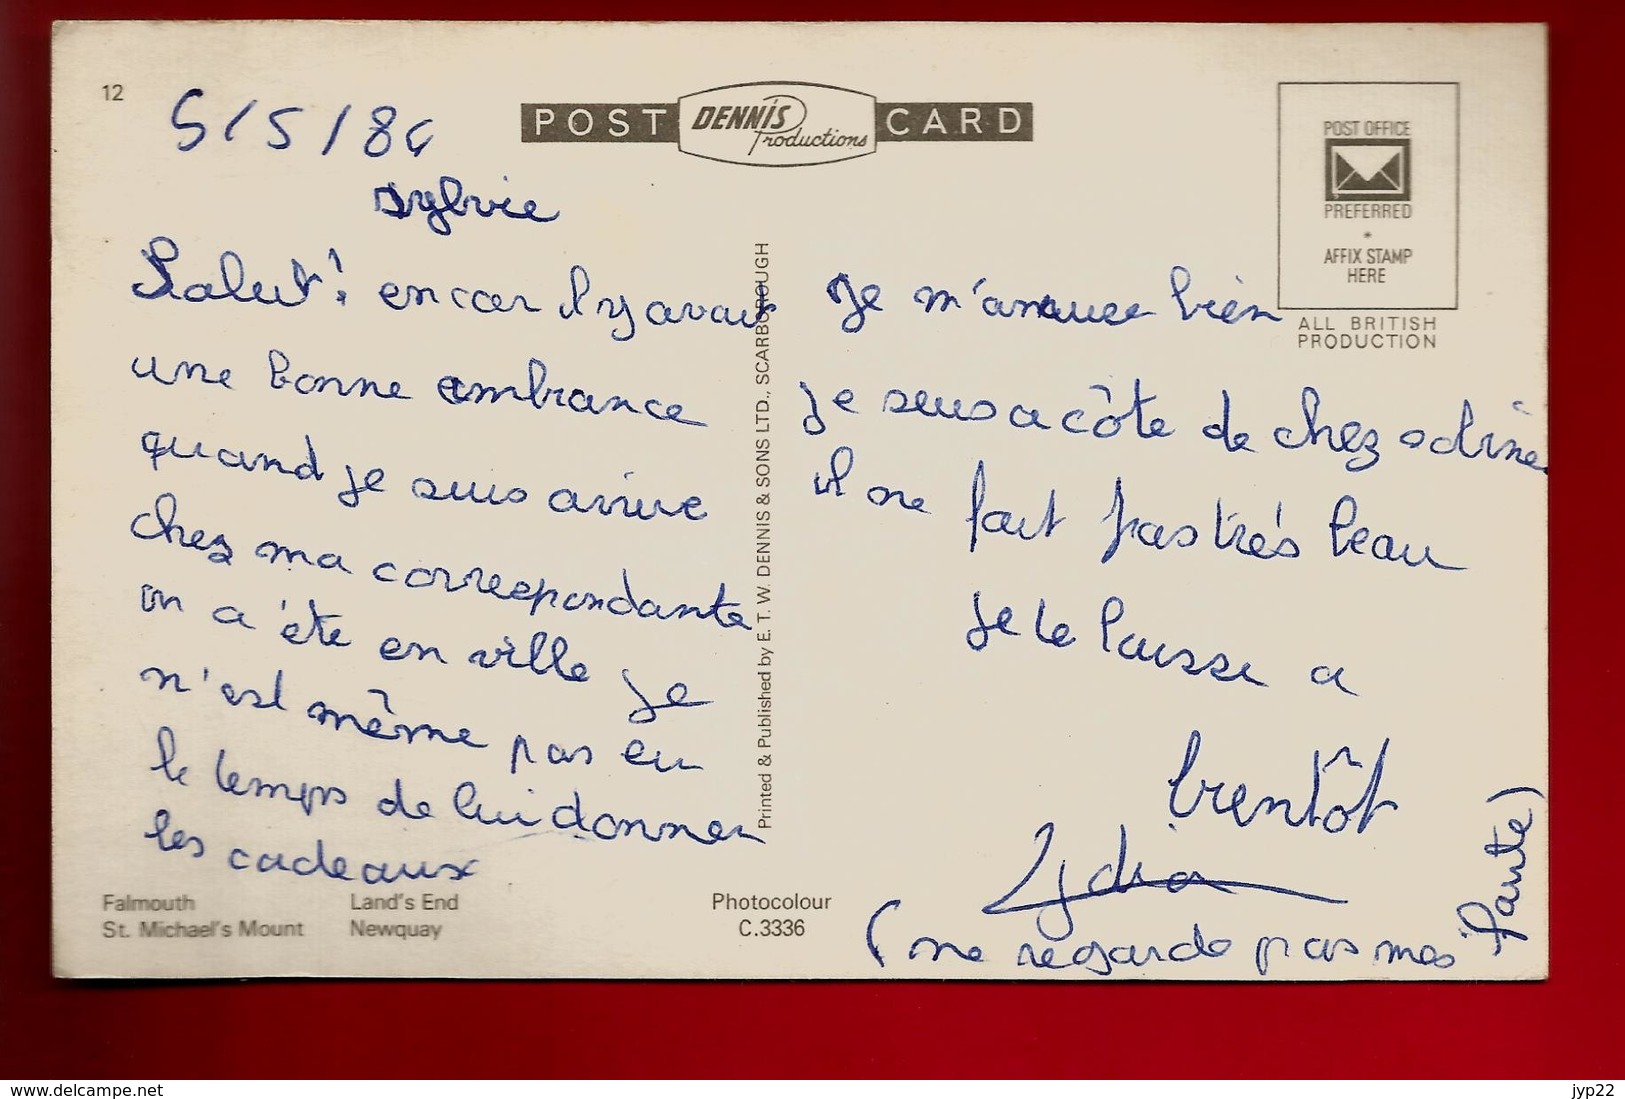 12
5/5/84
POST DENNIS Productions CARD
POST OFFICE
PREFERRED
*
AFFIX STAMP
HERE
ALL BRITISH
PRODUCTION
Sylvie
Salut! encor il y avait
une bonne ambiance
quand je suis arrivé
chez ma correspondante
on a été en ville je
n'est même pas eu
le temps de lui donner
les cadeaux
Printed & Published by E. T. W. DENNIS & SONS LTD., SCARBOROUGH
Je m'amuse bien
je suis a côte de chez odine
il ne fait pas très beau
je te laisse a
bientôt
Lydia
(ne regarde pas mes
faute)
Falmouth Land's End
St. Michael's Mount Newquay
Photocolour
C.3336
www.delcampe.net
jyp22